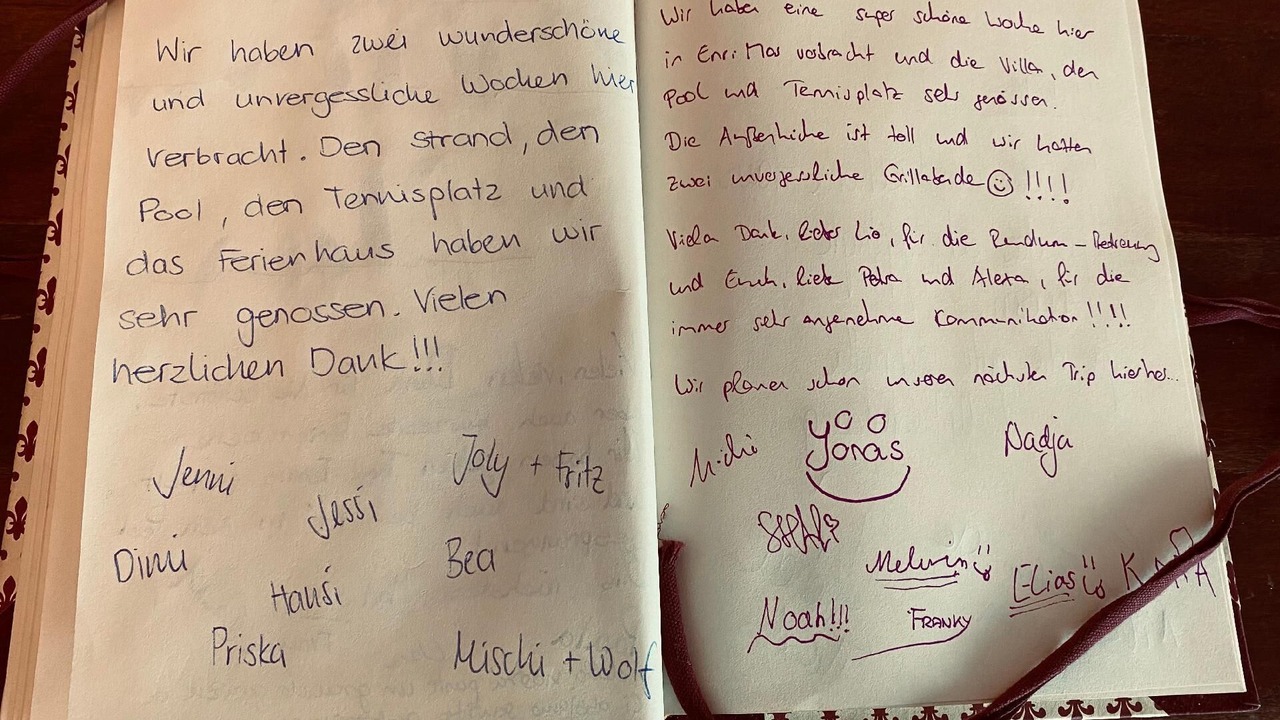 Wir haben zwei wunderschöne
und unvergessliche Wochen hier
verbracht. Den Strand, den
Pool, den Tennisplatz und
das Ferienhaus haben wir
sehr genossen. Vielen
herzlichen Dank!!!
Jenni
Joly + Fritz
Jessi
Dimi
Bea
Hansi
Priska
Mischi + Wolf
Wir haben eine super schöne Woche hier
in Enri Mar verbracht und die Villa, den
Pool und Tennisplatz sehr genossen.
Die Außenküche ist toll und wir hatten
zwei unvergessliche Grillabende ☺ !!!!
Vielen Dank, lieber Lio, für die Rundum-Betreuung
und Euch, liebe Petra und Alexa, für die
immer sehr angenehme Kommunikation !!!!
Wir planen schon unseren nächsten Trip hierher...
Michi
Yonas
Nadja
Melvin
Elias
Noah!!!
FRANKY